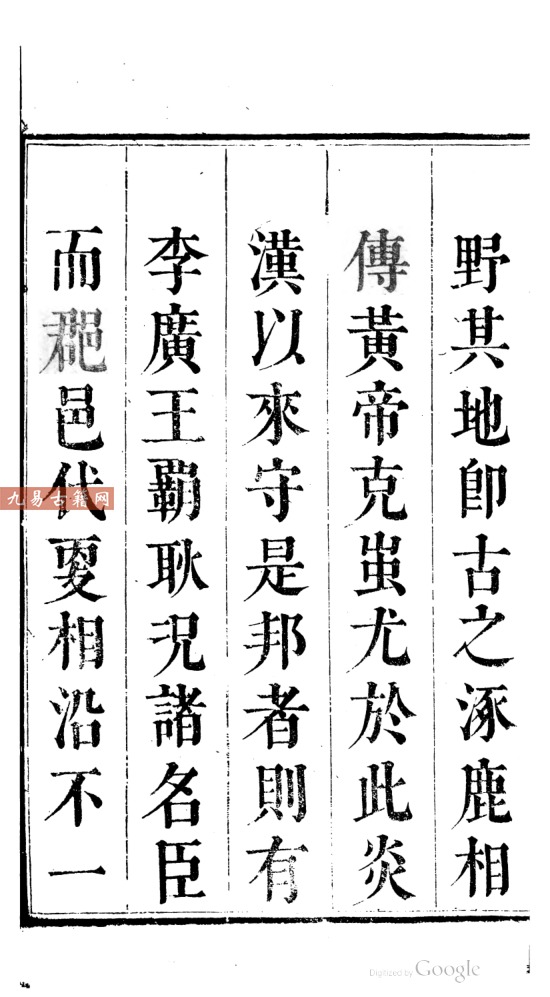 野其地卽古之涿鹿相
傳黃帝克蚩尤於此炎
漢以來守是邦者則有
李廣王霸耿況諸名臣
而郡邑代更相沿不一
九易古籍网
Digitized by Google